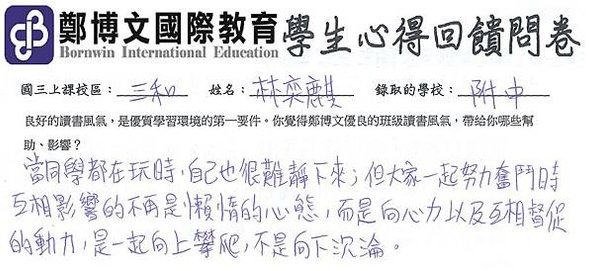 鄭博文國際教育 學生心得回饋問卷
Bornwin International Education
國三上課校區：三和 姓名：林奕麒 錄取的學校：附中
良好的讀書風氣，是優質學習環境的第一要件。你覺得鄭博文優良的班級讀書風氣，帶給你哪些幫
助、影響？
當同學都在玩時，自己也很難靜下來；但大家一起努力奮鬥時
互相影響的不再是懶惰的心態，而是向心力以及互相督促
的動力，是一起向上攀爬，不是向下沉淪。